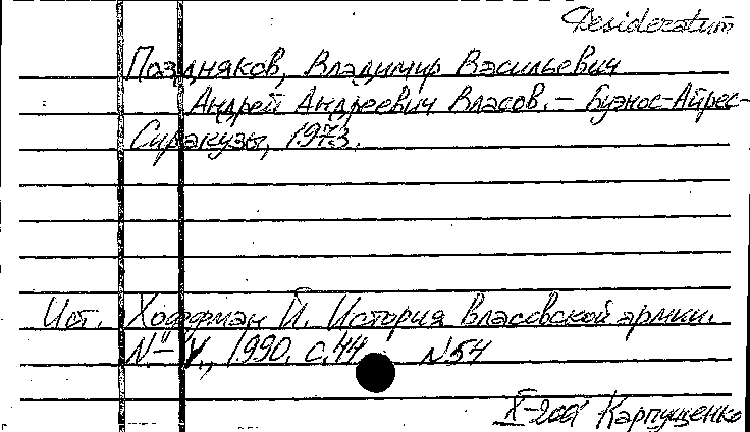 Desideratum
Поздняков, Владимир Васильевич
Андрей Андреевич Власов. – Буэнос-Айрес-
Сиракузы, 1973.
Ист. Хоффман Й. История Власовской армии.
N.-Y., 1990. с.44 N54
X-200 Карпущенко